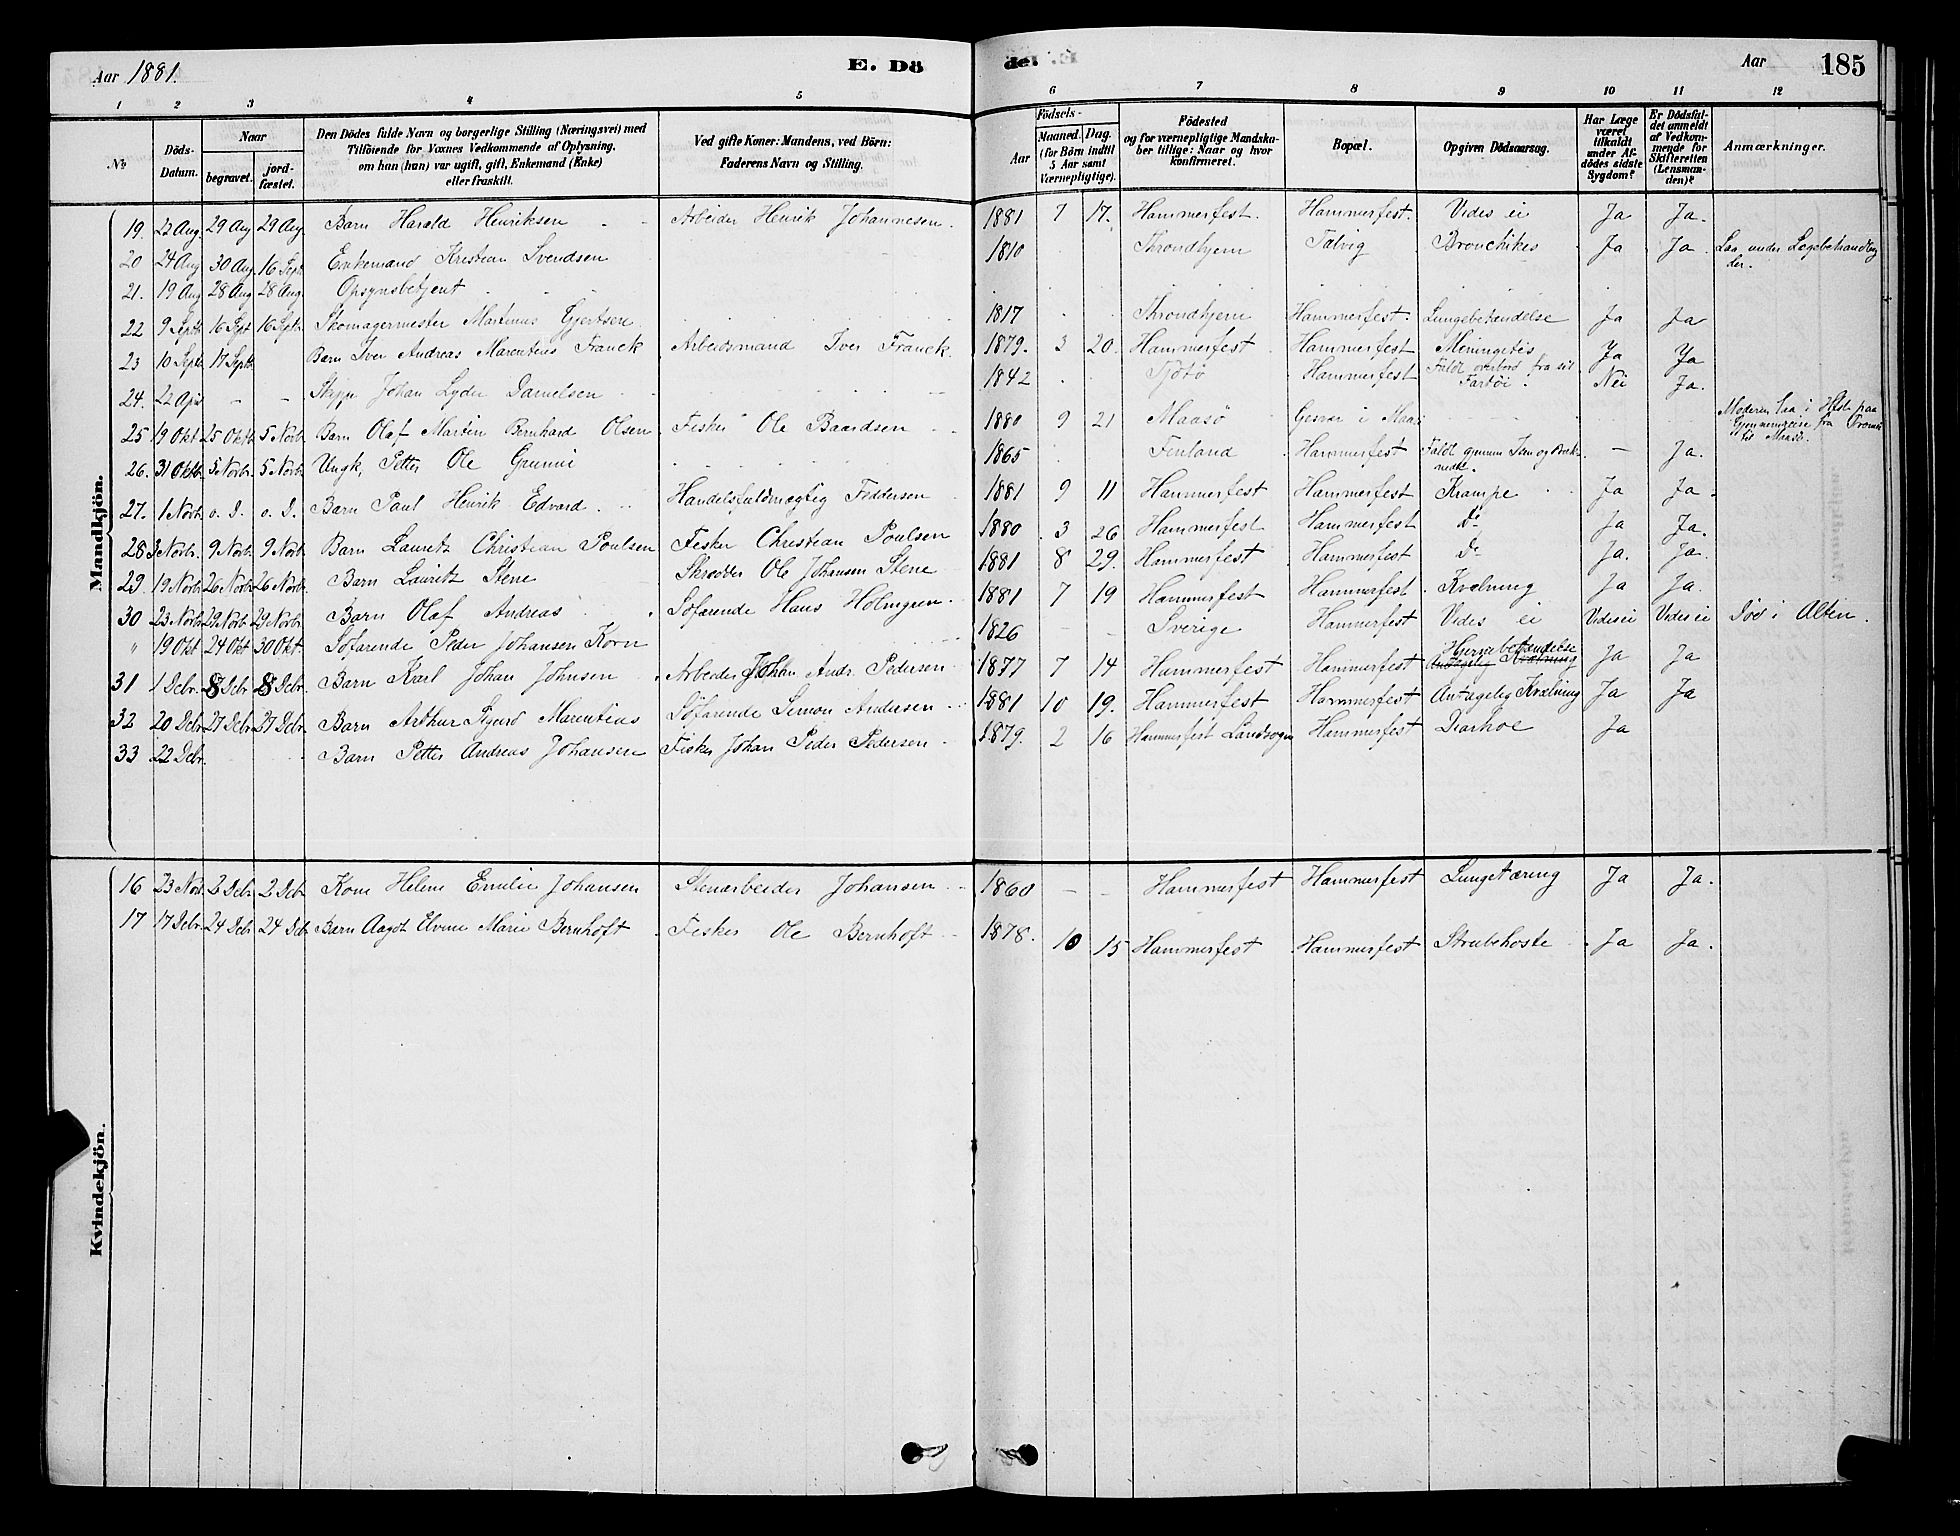 Aar 1881. E. Dö
de. Aar 185
1 2 3 4 5 6 7 8 9 10 11 12
No
Döds-Datum.
Naar
begravet. jordfæstet.
Den Dödes fulde Navn og borgerlige Stilling (Næringsvei) med
Tilföiende for Voxnes Vedkommende af Oplysning,
om han (hun) var ugift, gift, Enkemand (Enke)
eller fraskilt.
Ved gifte Koner: Mandens, ved Börn:
Faderens Navn og Stilling.
Födsels-
Aar Maaned. Dag.
(for Börn indtil
5 Aar samt
Værnepligtige).
Födested
og for værnepligtige Mandska-
ber tillige: Naar og hvor
konfirmeret.
Bopæl.
Opgiven Dödsaarsag.
Har Læge
været
tilkaldt
under Af-
dödes sidste
Sygdom?
Er Dödsfal-
det anmeldt
af Vedkom-
mende for
Skifteretten
(Lensman-
den)?
Anmærkninger.
Mandkjön.
19. 23 Aug. 29 Aug 29 Aug. Barn Harald Henriksen Arbeider Henrik Johannesen. 1881 7 17. Hammerfest. Hammerfest. Vides ei Ja Ja.
20 24 Aug 30 Aug. 16 Sept. Enkemand Kristian Svendsen 1810 Throndhjem Talvig Bronchites Ja Ja. Laa under Lægebehandling
der.
21. 19 Aug 28 Aug 28 Aug. Opsynsbetjent
22 9 Septb 16 Sept 16 Sept. Skomagermester Martinus Gjertsen 1817 Throndhjem Hammerfest. Lungebetændelse Ja Ja
23 10 Septb 17 Septb Barn Iver Andreas Marentius Franck Arbeidsmand Iver Franck. 1879. 3 20. Hammerfest Hammerfest Meningetis Ja Ja
24. 22 Apr - - Skipp Johan Lyder Danielsen 1842 Tjötö Hammerfest Faldt overbord fra sit
Fartöi. Nei Ja.
25 19 Okt 25 Oktb 5 Novb. Barn Olaf Martin Bernhard Olsen Fisker Ole Baardsen 1880 9 21 Maasö Gjesvær i Maas Moderen laa i Hfst. paa
Gjennemreise fra Tromsö
til Maasö.
26. 31 Oktb. 5 Novbr. 5 Novbr. Ungk, Petter Ole 1865 Finland Hammerfest Faldt gjennem Isen og druk-
nede. - Ja.
27. 1 Novb o. D. o. D. Barn Paul Henrik Edvard. Handelsfuldmægtig Feddersen 1881 9 11 Hammerfest Hammerfest Krampe Ja Ja.
28 3 Novbr. 9 Novbr. 9 Novbr. Barn Lauritz Christian Poulsen Fisker Christian Poulsen 1880 3 26 Hammerfest Hammerfest Do Ja Ja.
29 19 Novbr. 26 Novbr. 26 Novbr. Barn Lauritz Stene Skrædder Ole Johansen Stene 1881 8 29. Hammerfest Hammerfest Do Ja. Ja.
30 23 Novbr. 29 Novbr. 29 Novbr. Barn Olaf Andreas Söfarende Hans Holmgren. 1881 7 19 Hammerfest Hammerfest Kvælning Ja Ja.
" 19 Okt 24 Okt 30 Okt. Söfarende Peder Johansen Korn 1826 - - Sverige Hammerfest Vides ei Vides ei Vides ei Död i Alten.
31 1 Debr. 8 Debr 8 Debr. Barn Karl Johan Johnsen Arbeider Johan Andr. Pedersen 1877 7 14 Hammerfest Hammerfest Hjernebetændelse
Antagelig Kvælning Ja Ja
32 20 Debr 27 Debr 27 Debr. Barn Arthur Sigurd Marentius Söfarende Simon Andersen 1881 10 19. Hammerfest Hammerfest Antagelig Kvælning Ja Ja
33 22 Debr. Barn Petter Andreas Johansen Fisker Johan Peder Pedersen 1879. 2 16 Hammerfest Landsogn Hammerfest Diarhoe Ja
Kvindekjön.
16 23 Nov. 2 Debr 2 Debr Kone Helene Emilie Johansen Stenarbeider Johansen 1860 - - Hammerfest Hammerfest Lungetæring Ja Ja.
17 17 Debr. 24 Debr 24 Debr. Barn Aagot Elvine Marie Bernhoft Fisker Ole Bernhoft 1878. 10 15 Hammerfest Hammerfest Strubehoste Ja Ja.